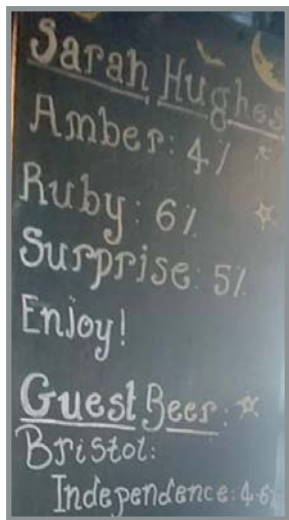 Sarah Hughes
Amber: 4%
Ruby: 6%
Surprise: 5%
Enjoy!
Guest Beer:
Bristol:
Independence: 4.6%